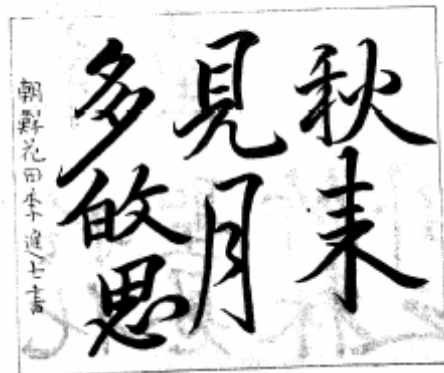 秋来
見月
多敀思
朝鮮花田李進士書